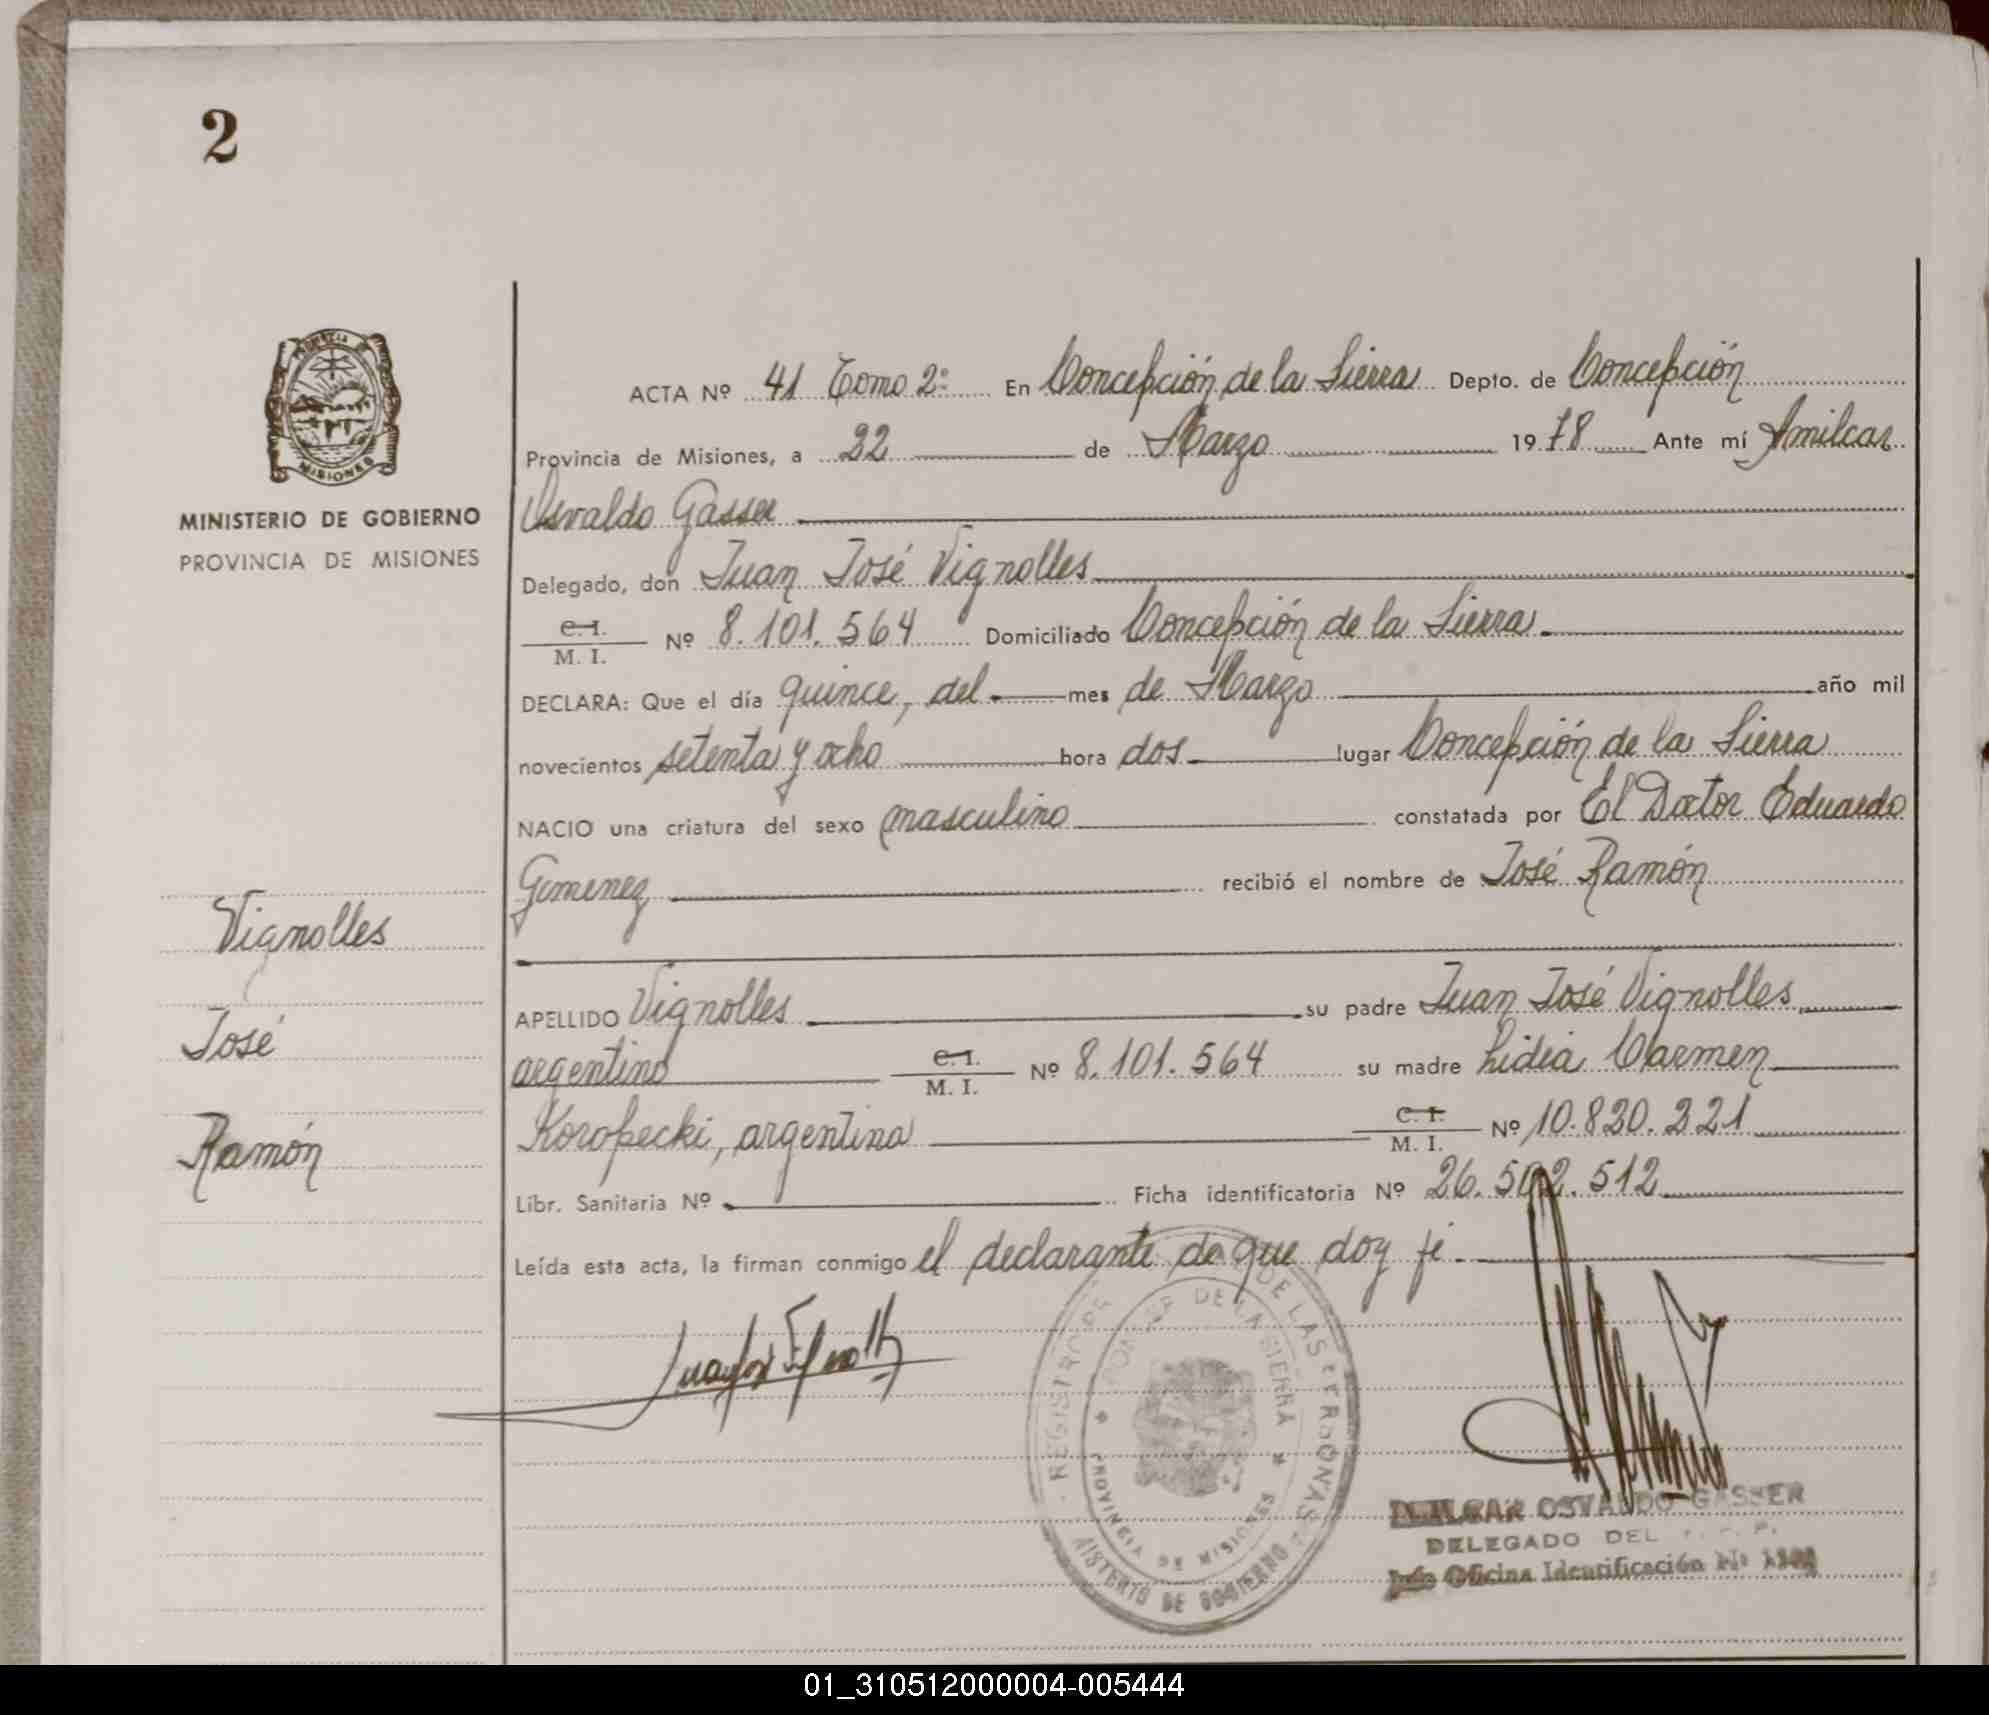 2
PROVINCIA DE
MISIONES
MINISTERIO DE GOBIERNO
PROVINCIA DE MISIONES
ACTA Nº 41 Tomo 2º En Concepción de la Sierra Depto. de Concepción
Provincia de Misiones, a 22 de Marzo 1978 Ante mí Amilcar
Osvaldo Gasser
Delegado, don Juan José Vignolles
C. I.
M. I. Nº 8.101.564 Domiciliado Concepción de la Sierra
DECLARA: Que el día quince, del mes de Marzo año mil
novecientos setenta y ocho hora dos lugar Concepción de la Sierra
NACIO una criatura del sexo masculino constatada por El Doctor Eduardo
Gimenez recibió el nombre de José Ramón
APELLIDO Vignolles su padre Juan José Vignolles
argentino C. I.
M. I. Nº 8.101.564 su madre Lidia Carmen
Koropecki, argentina C. I.
M. I. Nº 10.820.221
Libr. Sanitaria Nº Ficha identificatoria Nº 26.502.512
Leída esta acta, la firman conmigo el declarante de que doy fé
Vignolles
José
Ramón
REGISTRO DE LAS PERSONAS
DE LA SIERRA
PROVINCIA DE MISIONES
MINISTERIO DE GOBIERNO
AMILCAR OSVALDO GASSER
DELEGADO DEL
Jefe Oficina Identificación Nº
01_310512000004-005444